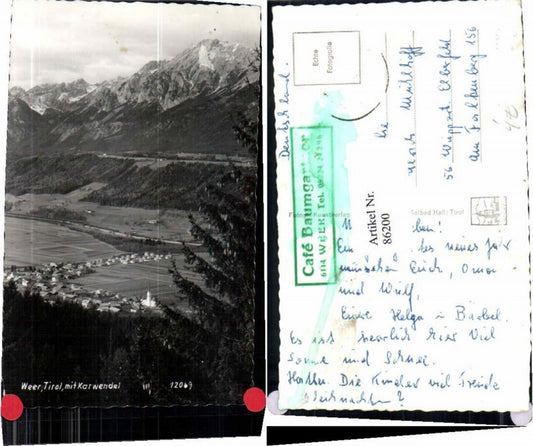 Weer, Tirol, mit Karwendel
12069
Echte
Fotografie
Deutschland.
56 Wuppert Elberfeld
Am Falkenberg 156
Café Baumgartner
6114 WEER, Tel.
Artikel Nr.
86200
Solbad Hall i. Tirol
Ein neues Jahr
wünschen Euch, Oma
und Wulf,
Eure Helga u Bärbel.
Es ist herrlich hier viel
Sonne und Schnee.
Hatten Die Kinder viel Freude
Weihnachten?